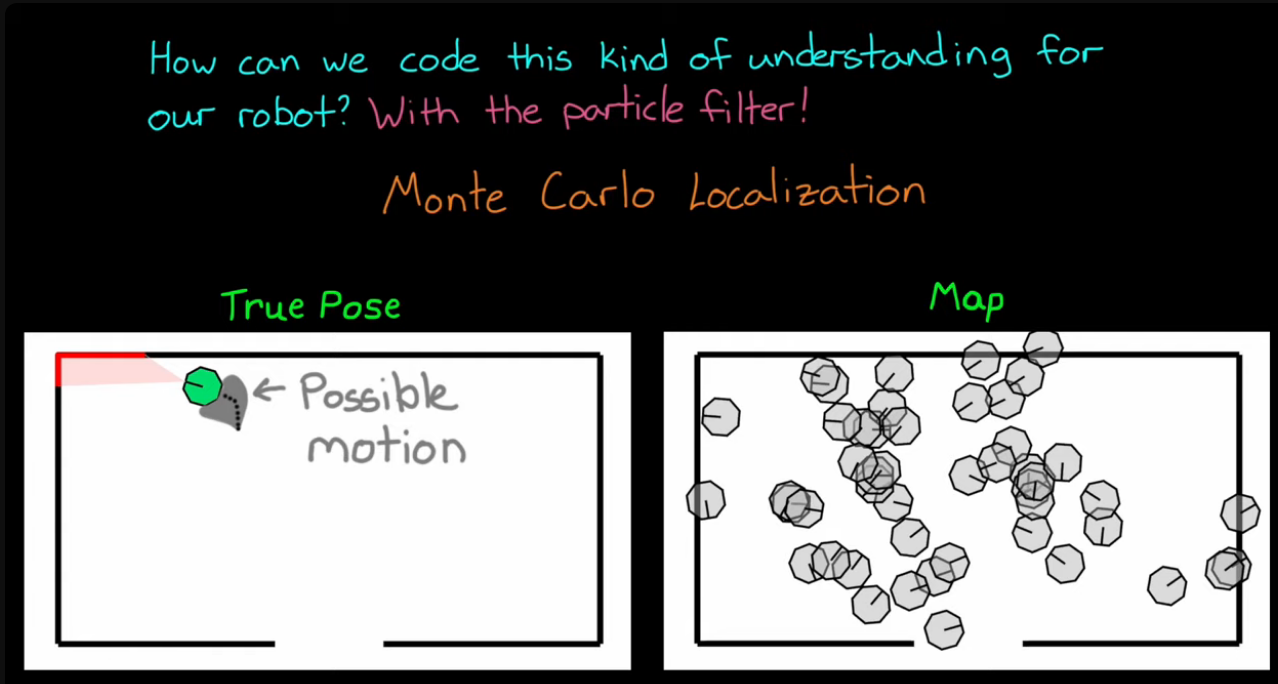 How can we code this kind of understanding for
our robot? With the particle filter!
Monte Carlo Localization
True Pose
Map
← Possible
motion